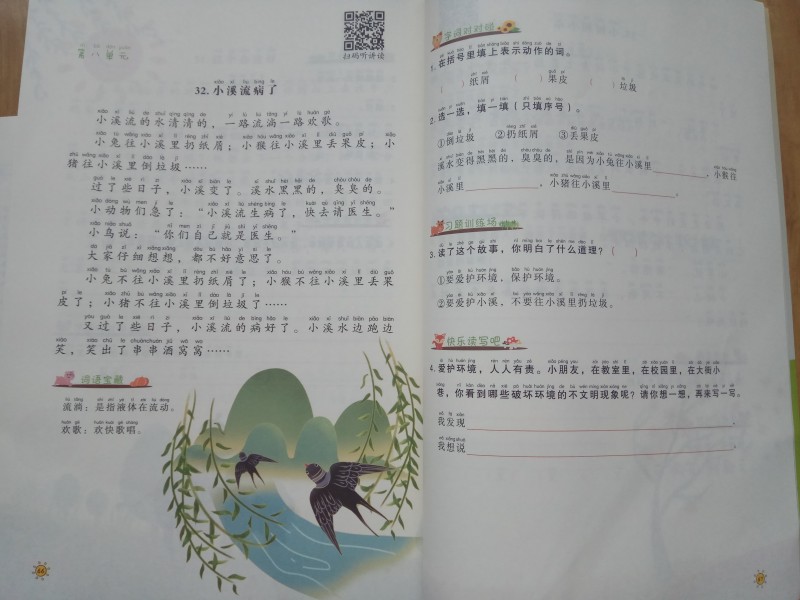 第八单元
扫码听讲读
32.小溪流病了
小溪流的水清清的，一路流淌一路欢歌。
小兔往小溪里扔纸屑；小猴往小溪里丢果皮；小
猪往小溪里倒垃圾……
过了些日子，小溪变了。溪水黑黑的，臭臭的。
小动物们急了：“小溪流生病了，快去请医生。”
小鸟说：“你们自己就是医生。”
大家仔细想想，都不好意思了。
小兔不往小溪里扔纸屑了；小猴不往小溪里丢果
皮了；小猪不往小溪里倒垃圾了……
又过了些日子，小溪流的病好了。小溪水边跑边
笑，笑出了串串酒窝窝……
词语宝藏
流淌：是指液体在流动。
欢歌：欢快歌唱。
66
字词对对碰
1. 在括号里填上表示动作的词。
（ ）纸屑 （ ）果皮 （ ）垃圾
2. 选一选，填一填（只填序号）。
①倒垃圾 ②扔纸屑 ③丢果皮
溪水变得黑黑的、臭臭的，是因为小兔往小溪里，小猴往
小溪里，小猪往小溪里。
习题训练场
3. 读了这个故事，你明白了什么道理？（ ）
①要爱护环境、保护环境。
②要爱护小溪，不要往小溪里扔垃圾。
快乐读写吧
4. 爱护环境，人人有责。小朋友，在教室里，在校园里，在大街小
巷，你看到哪些破坏环境的不文明现象呢？请你想一想，再来写一写。
我发现。
我想说。
67